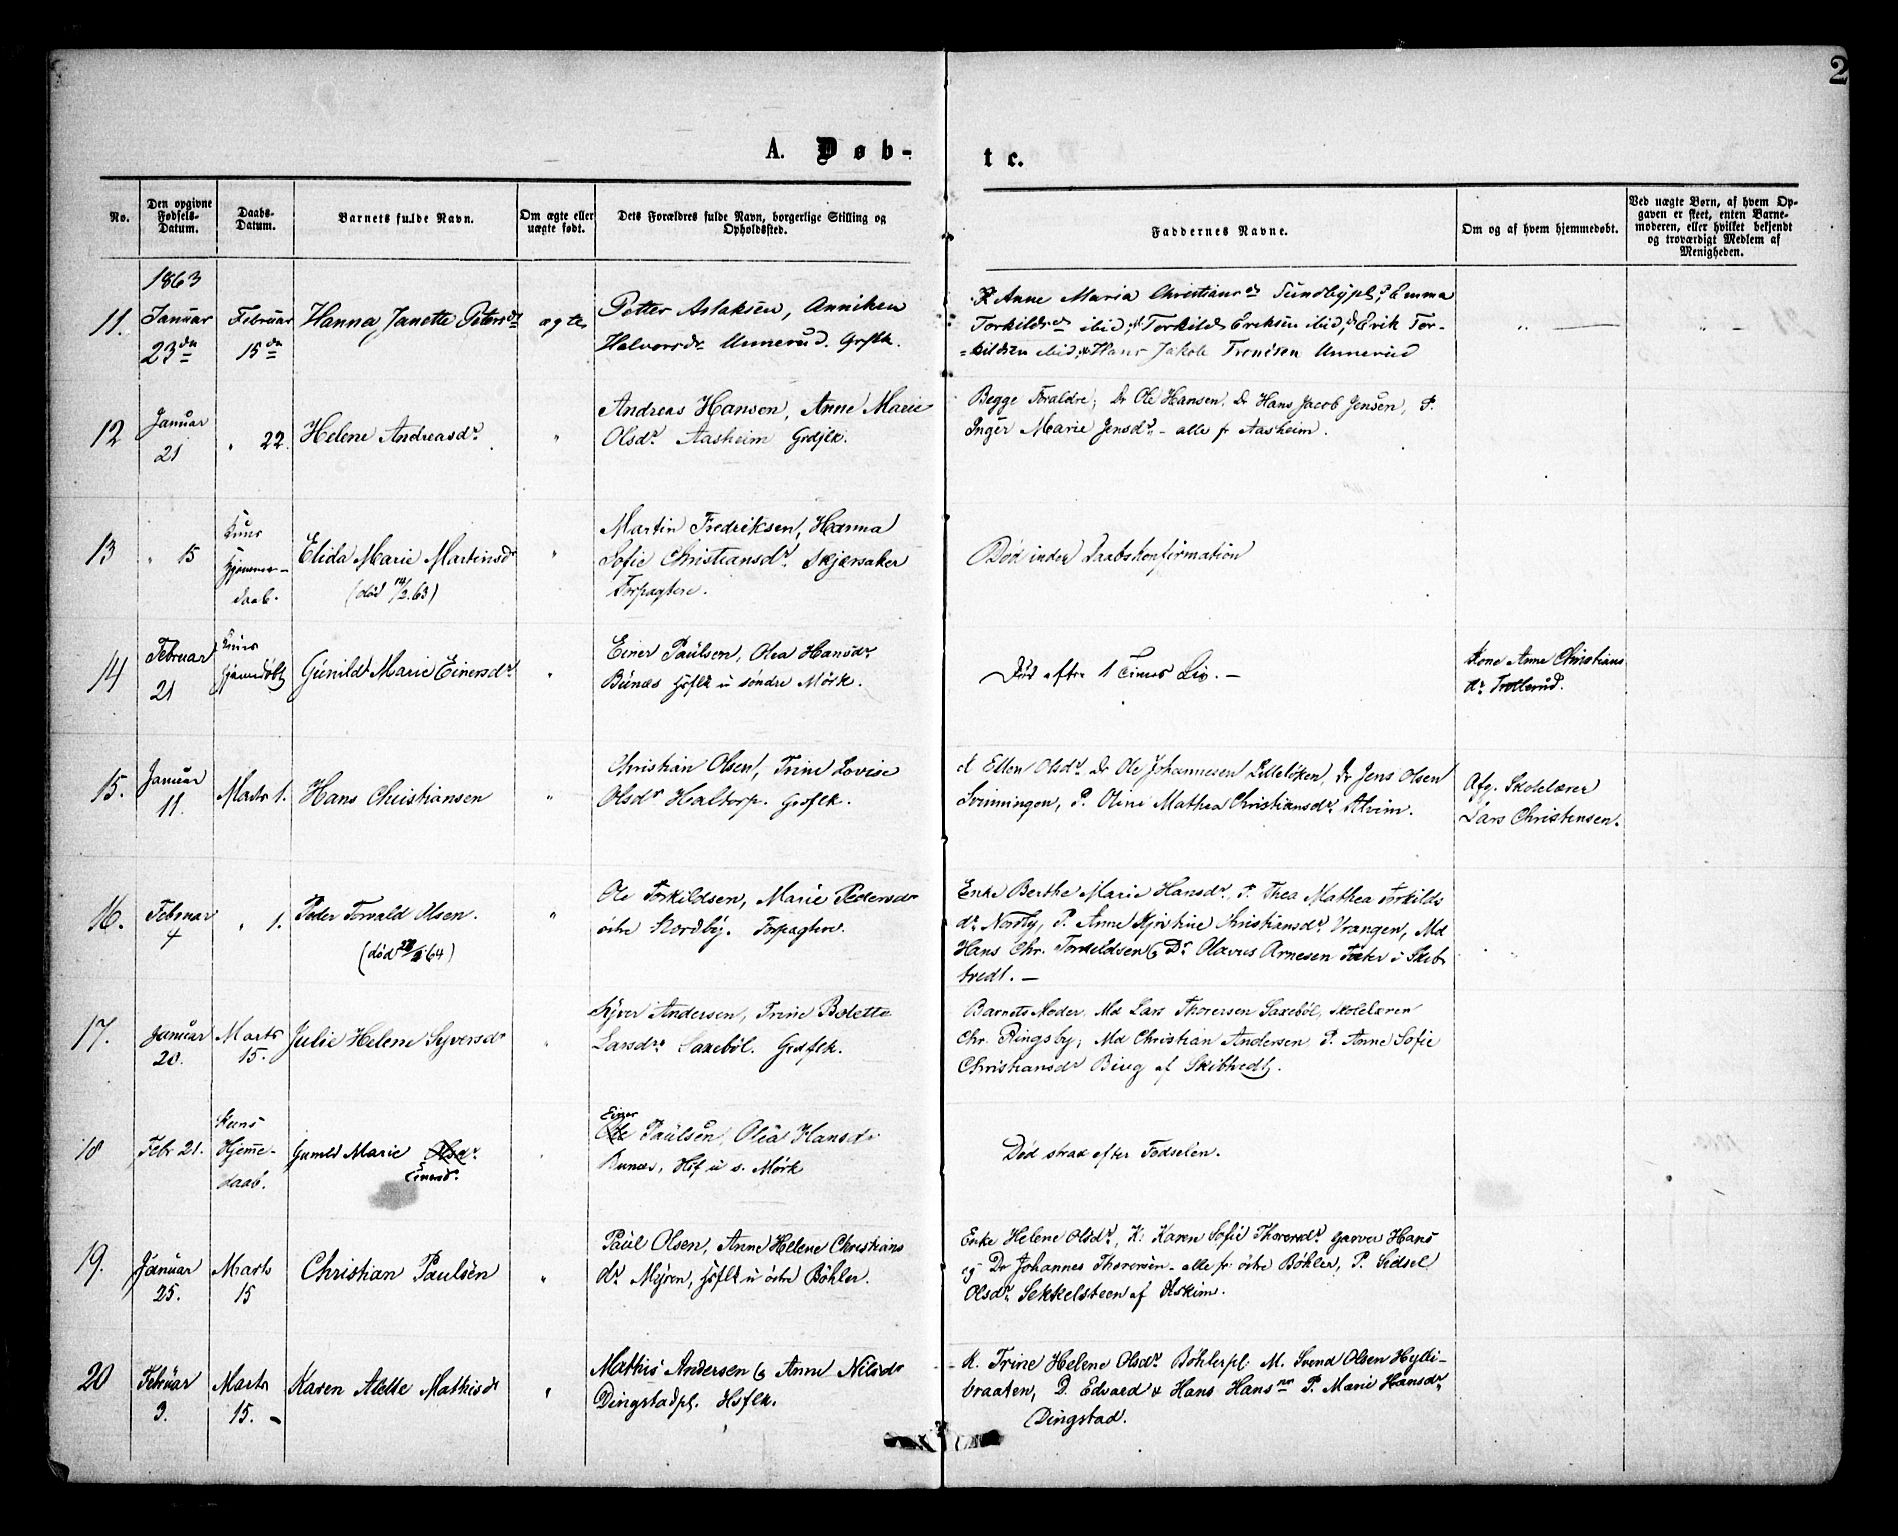 2
A. Døb-
te.
No.
Den opgivne
Fødsels-
Datum.
Daabs-
Datum.
Barnets fulde Navn.
Om ægte eller
uægte født.
Dets Forældres fulde Navn, borgerlige Stilling og
Opholdssted.
Faddernes Navne.
Om og af hvem hjemmedøbt.
Ved uægte Børn, af hvem Op-
gaven er skeet, enten Barne-
moderen, eller hvilket bekjendt
og troværdigt Medlem af
Menigheden.
1863
11.
Januar
23de
Februar
15de
Hanna Janette Petersdr
ægte
Petter Aslaksen, Anniken
Halvorsdr Unnerud. Grflk.
K Anne Maria Christiansdr Sundbypl, Emma
Torkildsdr ibid, Torkild Eriksen ibid, Erik Tor-
kildsen ibid, Hans Jakob Trondsen Unnerud
12
Januar
21
" 22.
Helene Andreasdr.
"
Andreas Hansen, Anne Marie
Olsdr. Aasheim Grdflk.
Begge Foræeldre, Dr Ole Hansen. Dr Hans Jacob Jensen, P.
Inger Marie Jensdr. - alle fr Aasheim.
13
" 15
Kuns
Hjemme-
daab.
Elida Marie Martinsdr
(død /2.63)
"
Martin Fredriksen, Hanna
Sofie Christiansdr. Skjærsaker
Forpagtere.
Død inden Daabskonfirmation
14
Februar
21
Kuns
hjemdøbt
Gunild Marie Einersdr.
"
Einer Paulsen, Olea Hansdr.
Bunæs Hsflk u søndre Mørk.
Død efter 1 Times Liv. -
Kone Anne Christians
dr. Trollerud.
15.
Januar
11.
Marts 1.
Hans Christiansen
"
Christian Olsen, Trine Lovise
Olsdr Haltorp. Grdflk.
K Ellen Olsdr. Dr Ole Johannesen Lilleløken, Dr Jens Olsen
Svenningen, P. Oline Mathea Christiansdr. Alvim.
Afg. Skolelærer
Lars Christensen.
16.
Februar
4
" 1.
Peder Torvald Olsen.
(død 64)
"
Ole Torkildsen, Marie Pedersdr
østre Nordby. Forpagtere.
Enke Berthe Marie Hansdr., P. Thea Mathea Torkilds
dr. Nordby, P. Anne Kjirstine Christiansdr. Vrangen, Md
Hans Chr. Torkildsen & Dr Olavus Arnesen Foeker i Skib
tvedt. -
17.
Januar
20.
Marts
15.
Julie Helene Syversdr
"
Syver Andersen, Trine Bolette
Larsdr. Saxebøl. Grdflk.
Barnets Moder, Md Lars Thoresen Saxebøl, Skolelærer
Chr. Ringsby, Md Christian Andersen P. Anne Sofie
Christiansdr Bing af Skibtvedt.
18
Febr 21.
Kuns
Hjemme-
daab.
Gunild Marie Olsdr.
Einersd.
Einer
Ole Paulsen, Olea Hansdr
Bunæs, Hsf u s. Mørk
Død strax efter Fødselen.
19.
Januar
25.
Marts
15
Christian Paulsen
"
Paul Olsen, Anne Helene Christians
dr. Myren, Hsflk u østre Bøhler.
Enke Helene Olsdr, K. Karen Sofie Thoresdr. garver Hans
og Dr Johannes Thoresen - alle fr østre Bøhler, P. Sidsel
Olsdr. Sekkelsteen af Askim.
20
Februar
3.
Marts
15. -
Karen Alette Mathisdr
"
Mathis Andersen & Anne Nilsdr
Dingstadpl. Hsflk.
K. Trine Helene Olsdr. Bøhlerpl. M. Svend Olsen Hylli-
braaten, D. Edvard & Hans Hansnr P. Marie Hansdr.
Dingstad.